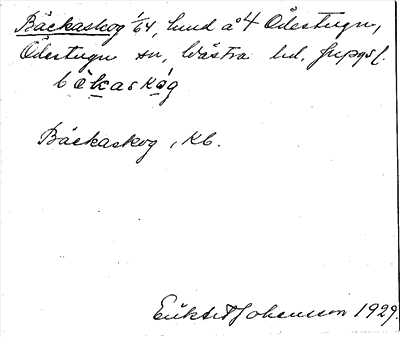 Bäckaskog 1/64, lund å 4 Ödestugu,
Ödestugu sn, Västra hd,
bäkaskóg
Bäckaskog, Kb.
Johansson 1929.